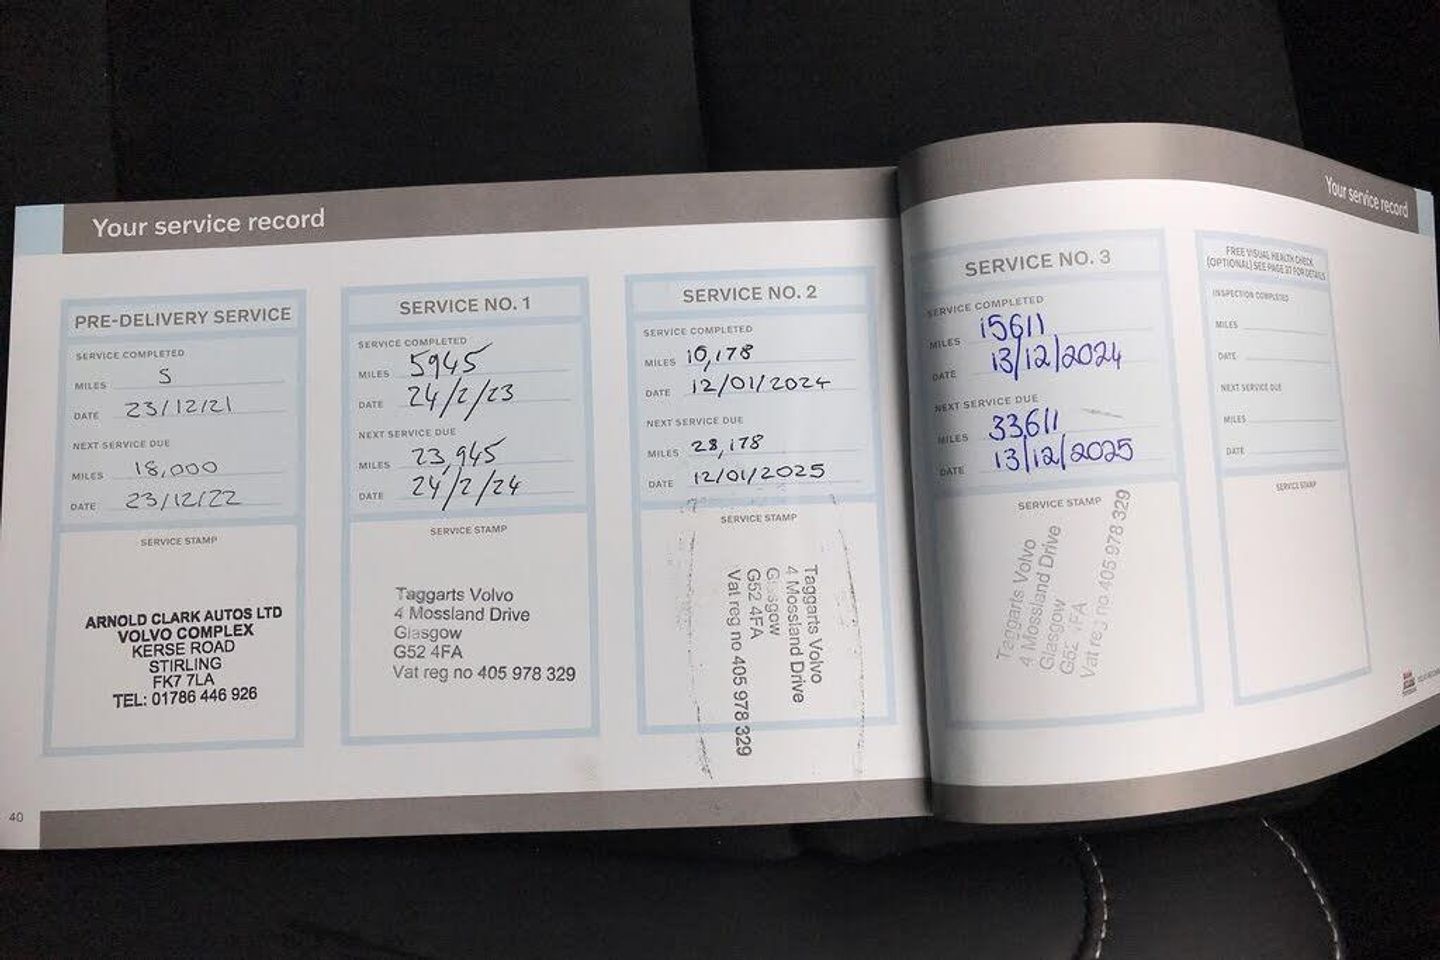 Your service record
PRE-DELIVERY SERVICE
SERVICE COMPLETED
MILES 5
DATE 23/12/21
NEXT SERVICE DUE
MILES 18,000
DATE 23/12/22
SERVICE STAMP
ARNOLD CLARK AUTOS LTD
VOLVO COMPLEX
KERSE ROAD
STIRLING
FK7 7LA
TEL: 01786 446 926
SERVICE NO. 1
SERVICE COMPLETED
MILES 5945
DATE 24/2/23
NEXT SERVICE DUE
MILES 23,945
DATE 24/2/24
SERVICE STAMP
Taggarts Volvo
4 Mossland Drive
Glasgow
G52 4FA
Vat reg no 405 978 329
SERVICE NO. 2
SERVICE COMPLETED
MILES 10,178
DATE 12/01/2024
NEXT SERVICE DUE
MILES 28,178
DATE 12/01/2025
SERVICE STAMP
Taggarts Volvo
4 Mossland Drive
Glasgow
G52 4FA
Vat reg no 405 978 329
40
Your service record
SERVICE NO. 3
SERVICE COMPLETED
MILES 15611
DATE 13/12/2024
NEXT SERVICE DUE
MILES 33,611
DATE 13/12/2025
SERVICE STAMP
Taggarts Volvo
4 Mossland Drive
Glasgow
G52 4FA
Vat reg no 405 978 329
FREE VISUAL HEALTH CHECK
(OPTIONAL) SEE PAGE 37 FOR DETAILS
INSPECTION COMPLETED
MILES
DATE
NEXT SERVICE DUE
MILES
DATE
SERVICE STAMP